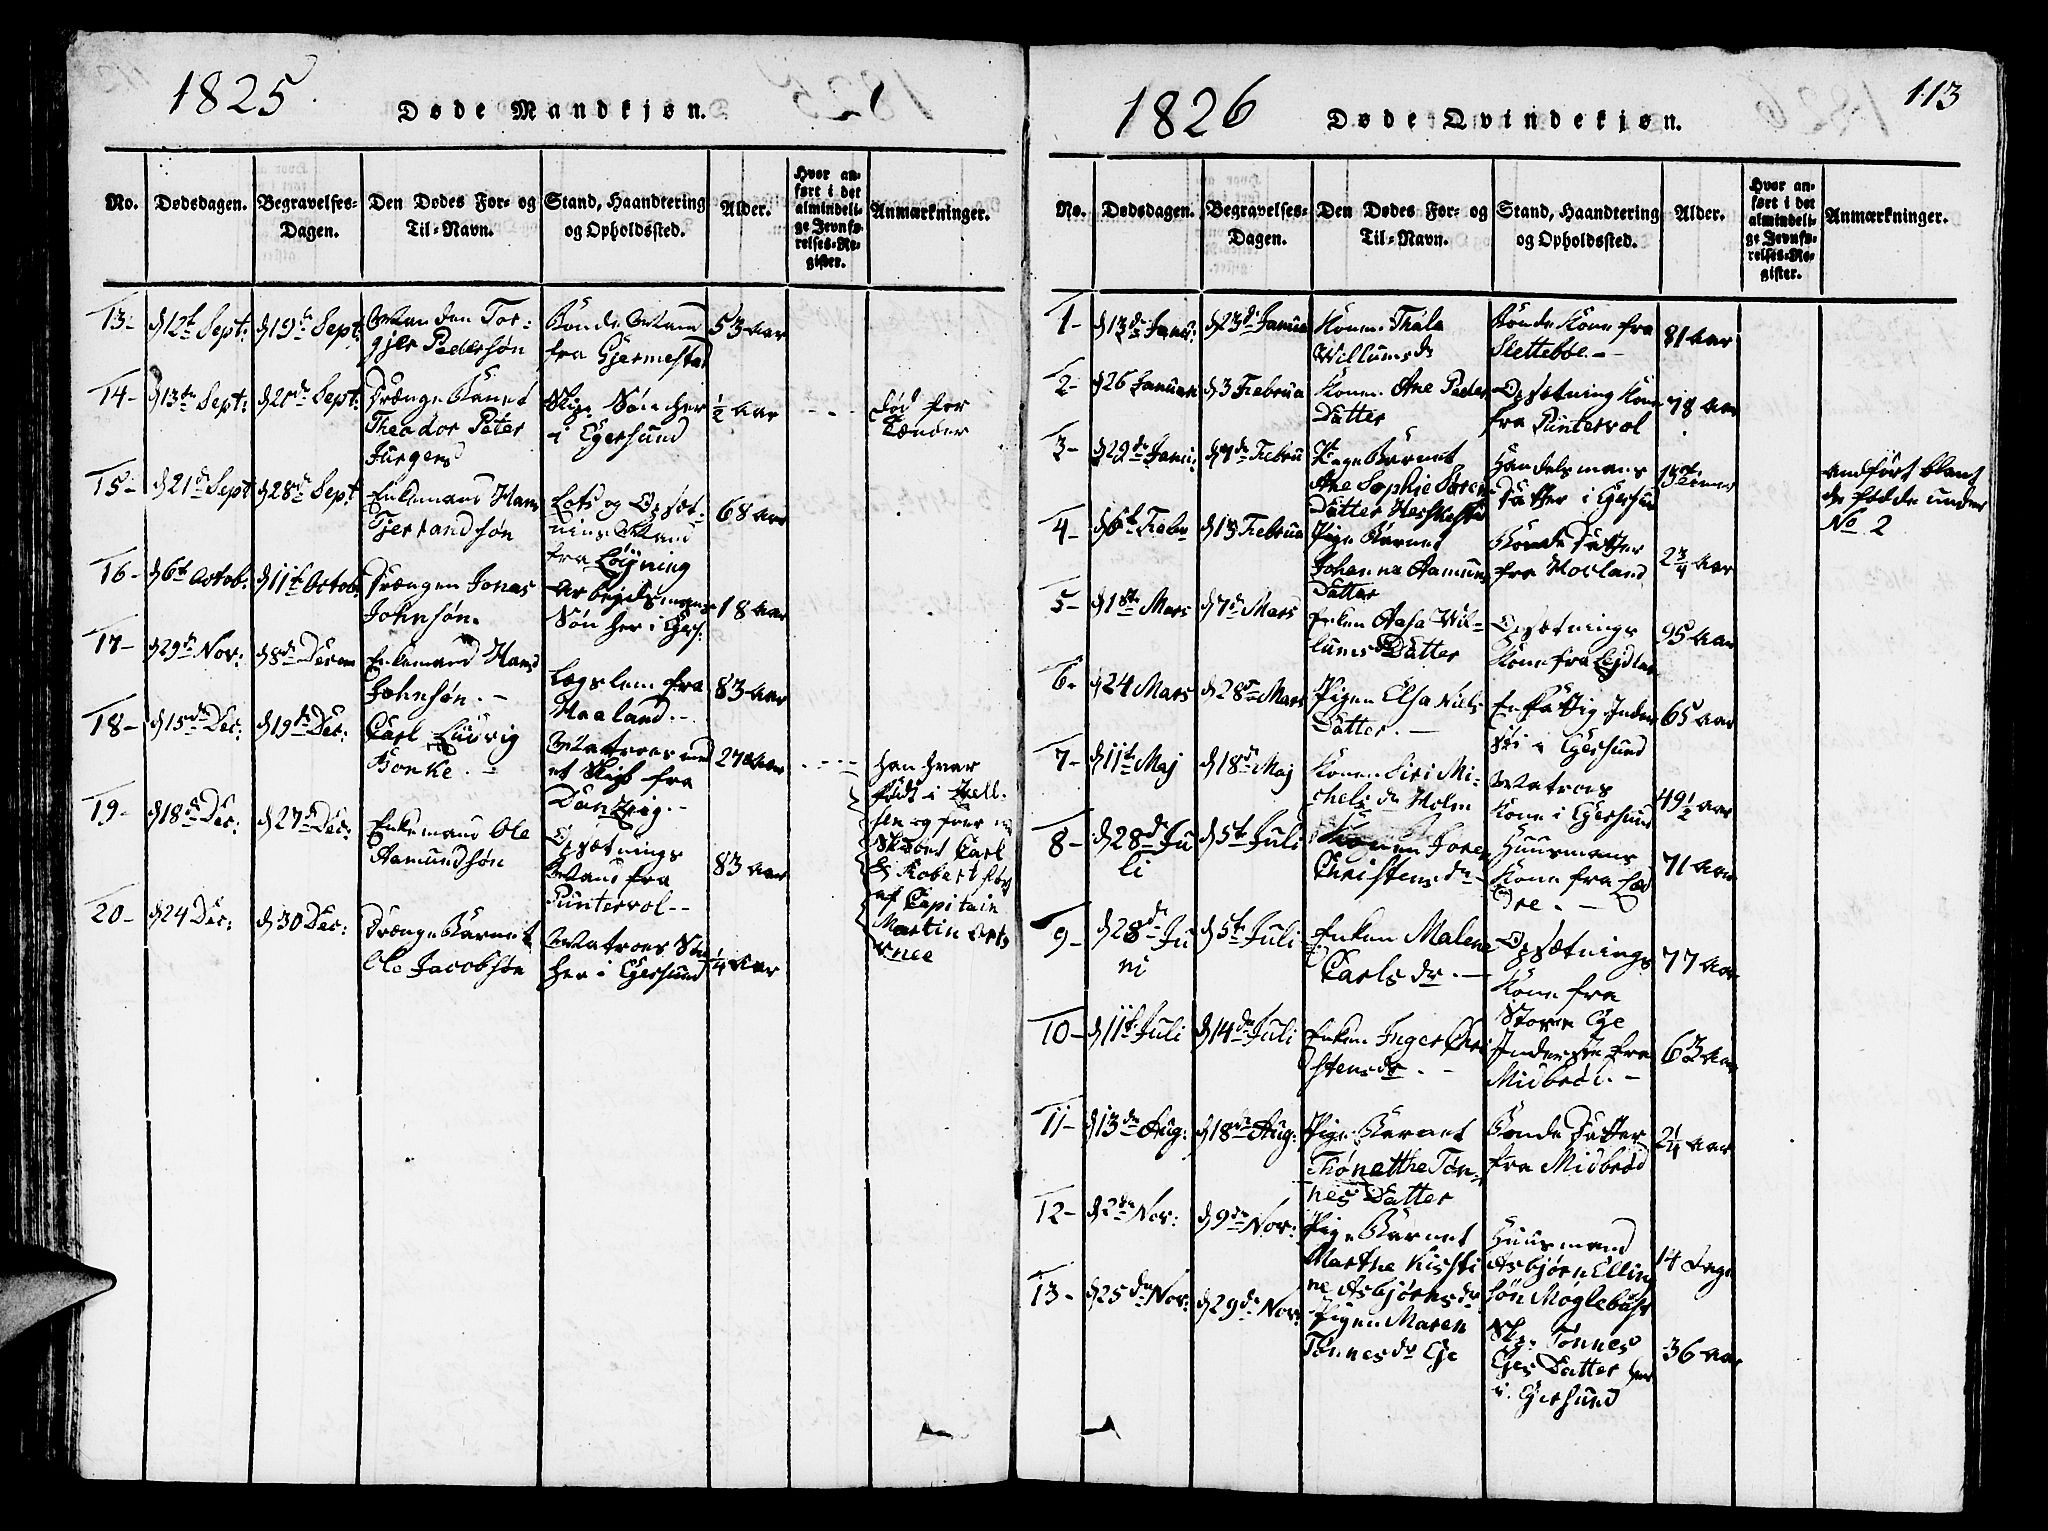 1825
Døde Mandkjøn.
No.
Dødsdagen.
Begravelses-
Dagen.
Den Dødes For- og
Til-Navn.
Stand, Haandtering
og Opholdssted.
Alder.
Hvor an-
ført i det
almindeli-
ge Jevnfø-
relses-Re-
gister.
Anmærkninger.
13- d 12t Sept: d 19t Sept: Manden Tor-
gjer Pedersøn
Bonde Mand
fra Gjermestad
53 Aar
14- d 13de Sept: d 21de Sept: Drænge Barnet
Theodor Peter
Jürgens
Skip. Søn her
i Egersund
½ Aar
død for
Tænder
15- d 21de Sept d 28de Sept Enkemand Hans
Tjerlandsøn
Lods og Opsæt-
nings Mand
fra Løyning
68 Aar
16- d 6t Octob: d 11t Octob: Drængen Jonas
Johnsøn.
Arbejdsmands
Søn her i Egers.
18 Aar
17- d 29de Nov: d 8de Decem Enkemand Hans
Johnsøn. -
Lægslem fra
Haaland. -
83 Aar
18- d 15de Dec: d 19de Dec: Carl Ludvig
Bonke. -
Matroes med
et Skib fra
Dantzig. -
27 Aar
han hvar
født i
og foer
Carl
Robert
af Capitain
Martin
19- d 18de Dec: d 27de Dec: Enkemand Ole
Aamundsøn
Opsætnings
Mand fra
Puntervol -
83 Aar
20- d 24 Dec: d 30 Dec: Drænge Barnet
Ole Jacobsøn
Matroes Søn
her i Egersund
¼ Aar
1826
Døde Qvindekjøn.
113
No.
Dødsdagen.
Begravelses-
Dagen.
Den Dødes For- og
Til-Navn.
Stand, Haandtering
og Opholdssted.
Alder.
Hvor an-
ført i det
almindeli-
ge Jevnfø-
relses-Re-
gister.
Anmærkninger.
1- d 13de Janu: d 23de Janua Konen Thala
Willumsdr
Bonde Kone fra
Slettebøe -
81 Aar
2- d 26 Januar d 3 Februa Konen Ane Peder
Datter
Opsætning Kone
fra Puntervol
78 Aar
3- d 29de Janu: d 7de Februa Pige Barnet
Ane Sophie Søren
Datter
Handelsmans
Datter i Egersun
andført blant
de fødde under
No 2
4- d 6t Febr d 13 Februa Pige Barnet
Johanna Aamunds
Datter
Bonde Datter
fra Hovland
2¾ Aar
5- d 1ste Mars d 7de Mars Enken Aasa Wil-
lums Datter
Opsætnings
Kone fra
95 Aar
6- d 24 Mars d 28de Mars Pigen Elsa Niels
Datter. -
En Fattig Inder
i Egersund
65 Aar
7- d 11t Maj d 18de Maj Konen Siri Mi-
chelsdr Holm
Matroes
Kone i Egersund
49½ Aar
8- d 28de Ju
li
d 5t Juli Konen
Christensdr -
Huusmans
Kone fra
71 Aar
9- d 28de Ju
ni
d 5t Juli Enken Malene
Carlsdr. -
Opsætnings
Kone fra
Store Ege
77 Aar
10- d 11t Juli d 14de Juli Enken Inger Chri
stensdr. -
fra
Midbrød. -
63 Aar
11- d 13de Aug: d 18de Aug: Pige Barnet
Thönetthe Tön-
nes Datter
Bonde Datter
fra Midbrød
2¼ Aar
12- d 2de Nov: d 9de Nov: Pige Barnet
Marthe Kisti
ne Asbjørnsdr
Huusmand
Asbjørn Elling
søn Møglebust
14 Dage
13- d 25de Nov: d 29de Nov: Pigen Maren
Tønnesdr Ege
Tønnes
Eges Datter her
i Egersund
36 Aar